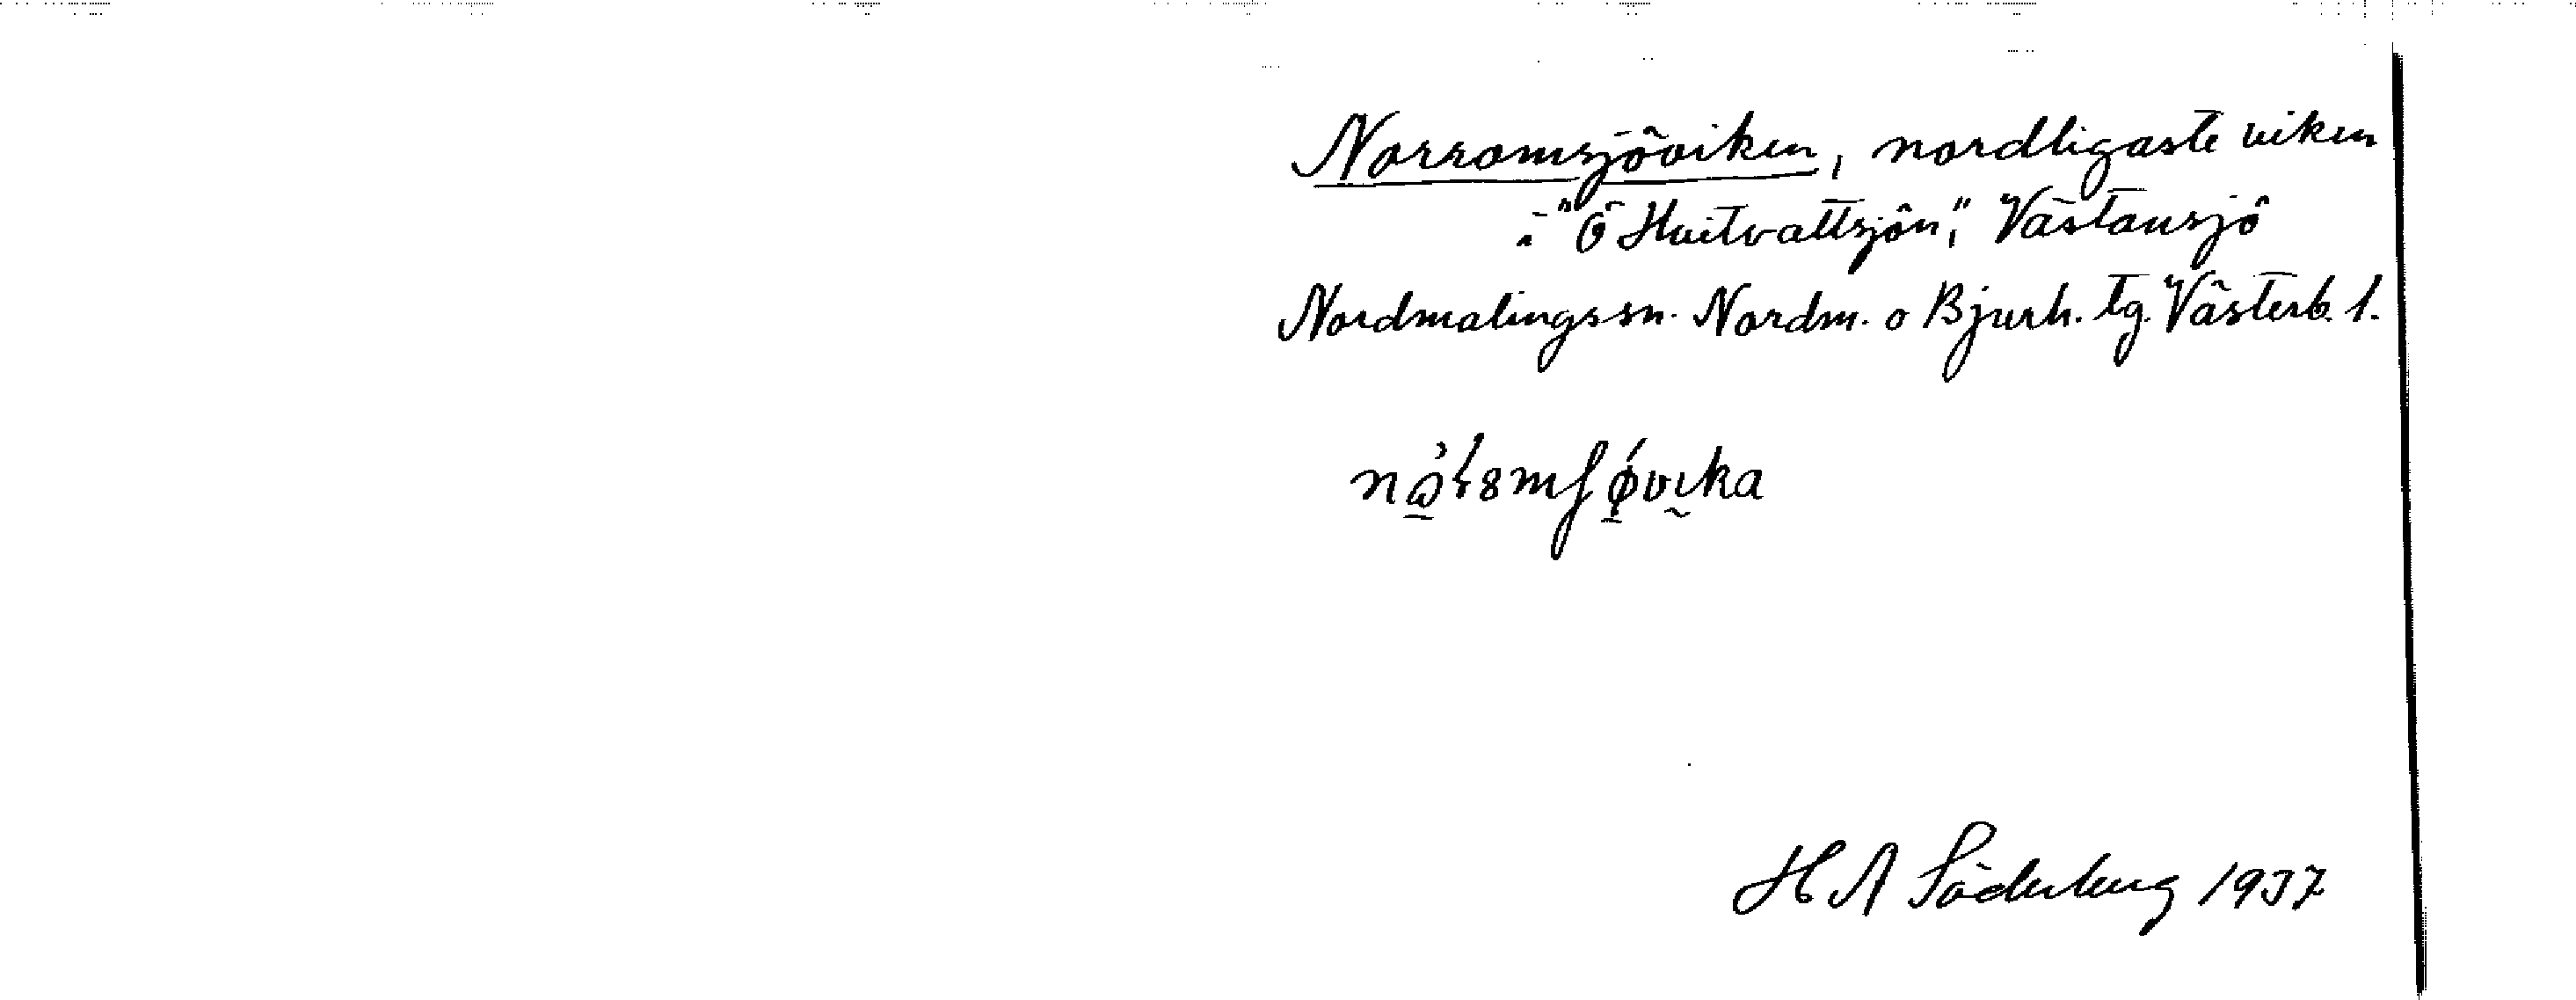 Norromsjöviken, nordligaste viken
i "Ö Hvitvattsjön", Västansjö
Nordmalings sn. Nordm. o Bjurh. tg. Västerb. l.
H A Söderberg 1937